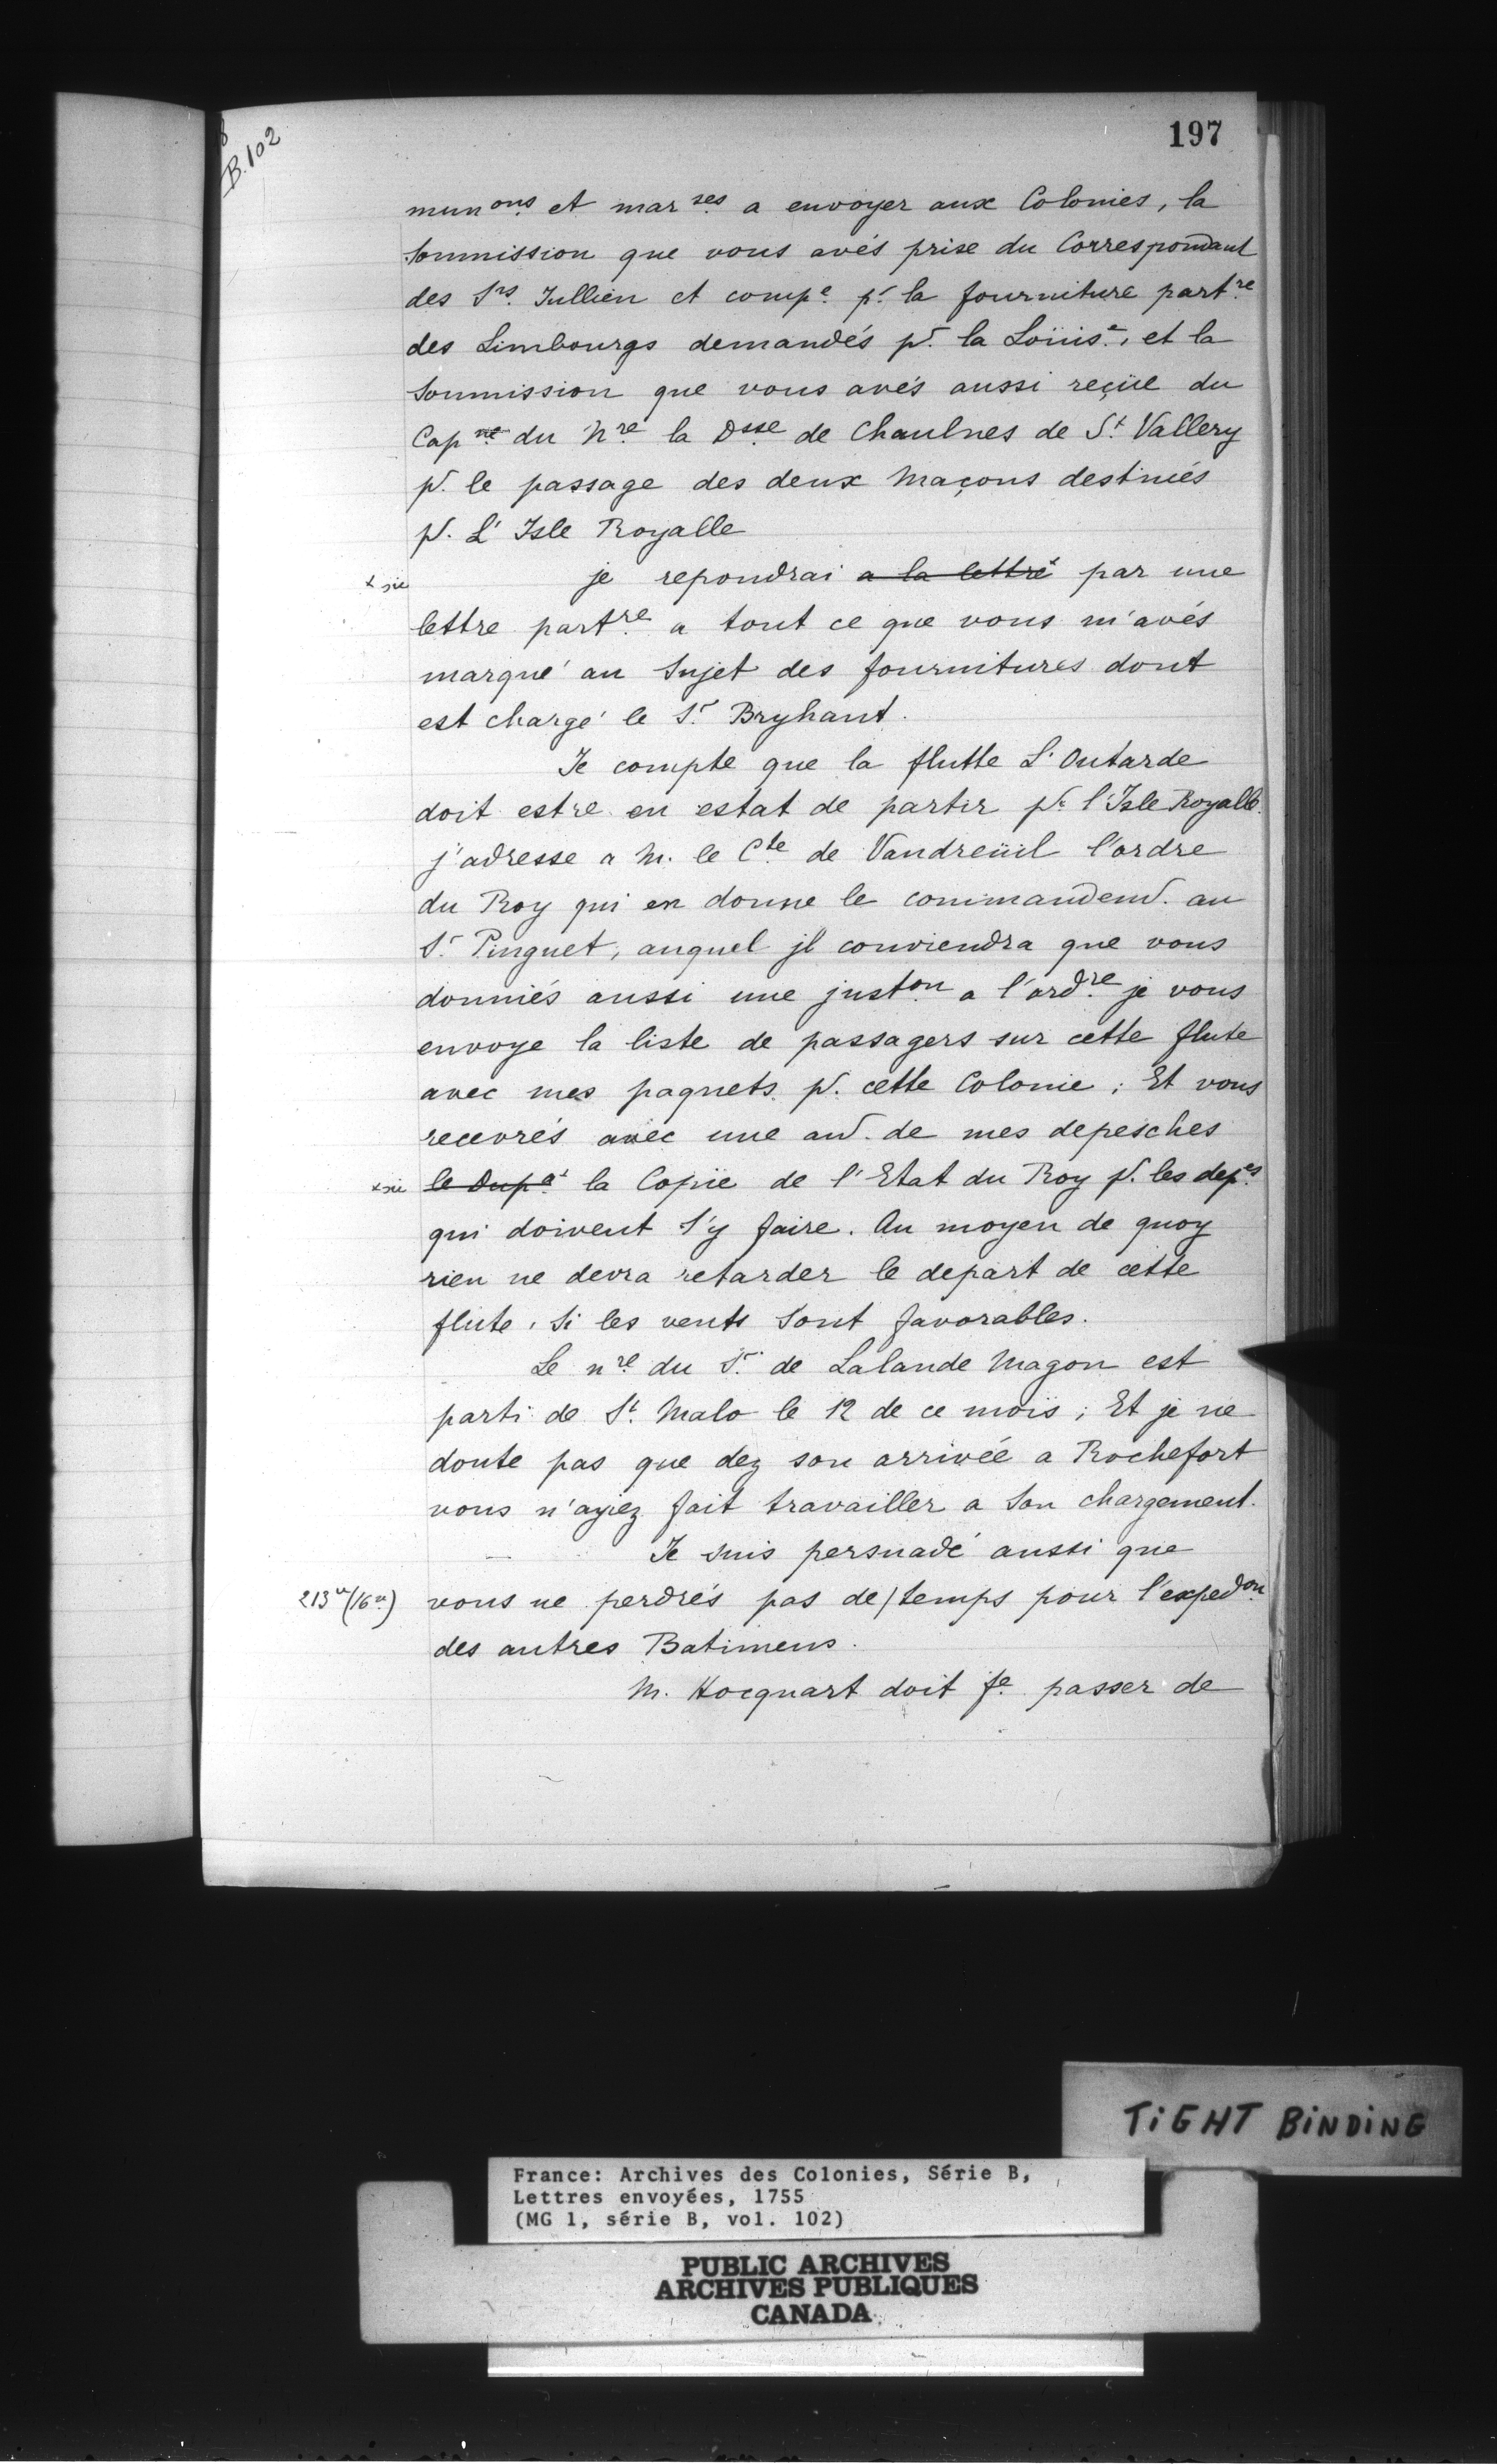 B.102
197
mun ons et mar ses a envoyer aux Colonies, la
soumission que vous avés prise du Correspondant
des Srs. Jullien et compe pr la fourniture partre
des Limbourgs demandés pr. la Loüise, et la
soumission que vous avés aussi reçüe du
Capne du Nre la Dsse de Chaulnes de St Vallery
pr. le passage des deux Maçons destinés
pr. L'Isle Royalle
x sic je repondrai a la lettre x par une
lettre partre a tout ce que vous m'avés
marqué au Sujet des fournitures dont
est chargé le Sr Bryhant.
Je compte que la flutte L'Outarde
doit estre en estat de partir pr l'Isle Royalle.
j'adresse a M. le Cte de Vaudreüil l'ordre
du Roy qui en donne le commandemt. au
Sr Pinguet, auquel jl conviendra que vous
donniés aussi une juston a l'ordre je vous
envoye la liste de passagers sur cette flute
avec mes paquets pr. cette Colonie; Et vous
recevrés avec une aut. de mes depesches
x sic le Dupa x la Copie de l'Etat du Roy pr. les depes
qui doivent S'y faire. Au moyen de quoy
rien ne devra retarder le depart de cette
flute, Si les vents Sont favorables.
Le nre du Sr. de Lalande Magon est
parti de St. Malo le 12 de ce mois; Et je ne
doute pas que dez son arrivée a Rochefort
vous n'ayiez fait travailler a Son chargement.
Je suis persuadé aussi que
213 vo (16 vo) vous ne perdrés pas de/temps pour l'expedon
des autres Batimens.
M. Hocquart doit fe passer de
TiGHT BiNDiNG
France: Archives des Colonies, Série B,
Lettres envoyées, 1755
(MG 1, série B, vol. 102)
PUBLIC ARCHIVES
ARCHIVES PUBLIQUES
CANADA